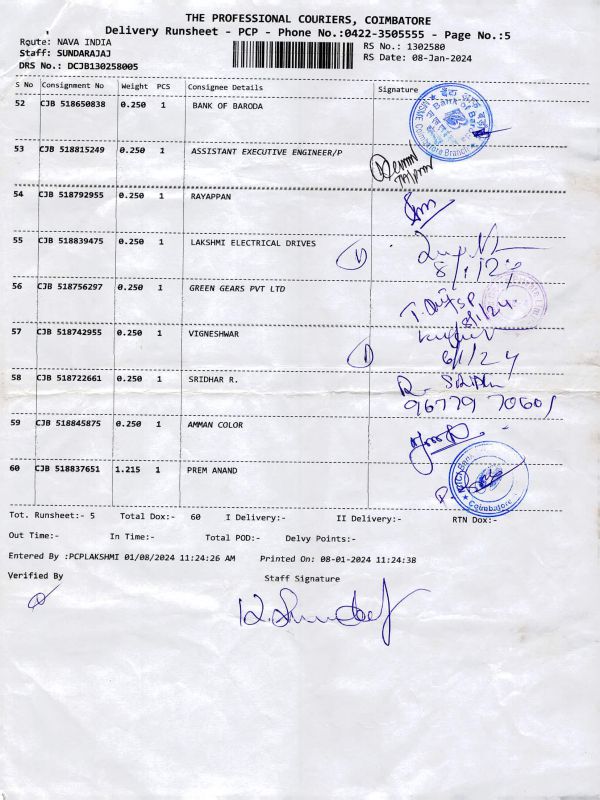 THE PROFESSIONAL COURIERS, COIMBATORE
Delivery Runsheet - PCP - Phone No.:0422-3505555 - Page No.:5
Route: NAVA INDIA
RS No.: 1302580
Staff: SUNDARAJAJ
RS Date: 08-Jan-2024
DRS No.: DCJB130258005
S No Consignment No Weight PCS Consignee Details Signature
52 CJB 518650838 0.250 1 BANK OF BARODA
53 CJB 518815249 0.250 1 ASSISTANT EXECUTIVE ENGINEER/P
54 CJB 518792955 0.250 1 RAYAPPAN
55 CJB 518839475 0.250 1 LAKSHMI ELECTRICAL DRIVES
56 CJB 518756297 0.250 1 GREEN GEARS PVT LTD
8/1/24
57 CJB 518742955 0.250 1 VIGNESHWAR
6/1/24
58 CJB 518722661 0.250 1 SRIDHAR R.
59 CJB 518845875 0.250 1 AMMAN COLOR
60 CJB 518837651 1.215 1 PREM ANAND
Coimbatore
Tot. Runsheet:- 5 Total Dox:- 60 I Delivery:- II Delivery:- RTN Dox:-
Out Time:- In Time:- Total POD:- Delvy Points:-
Entered By :PCPLAKSHMI 01/08/2024 11:24:26 AM Printed On: 08-01-2024 11:24:38
Verified By Staff Signature